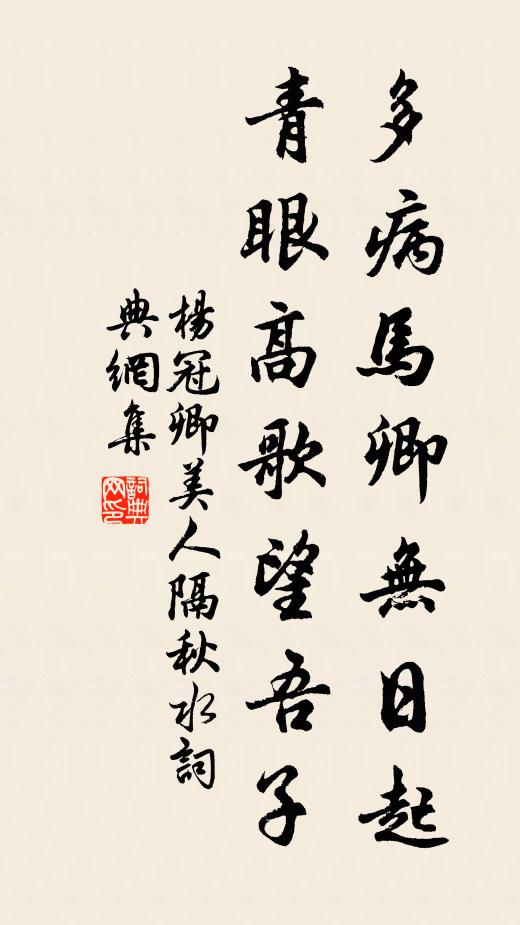 多病馬卿無日起
青眼高歌望吾子
楊冠卿美人隔秋水詞
典網集
詞典网印